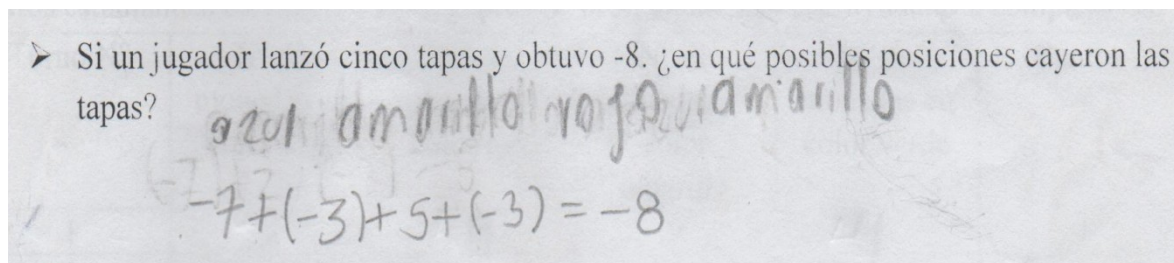 ➤ Si un jugador lanzó cinco tapas y obtuvo -8. ¿en qué posibles posiciones cayeron las
tapas?
azul amarillo rojo amarillo
-7+(-3)+5+(-3)=-8